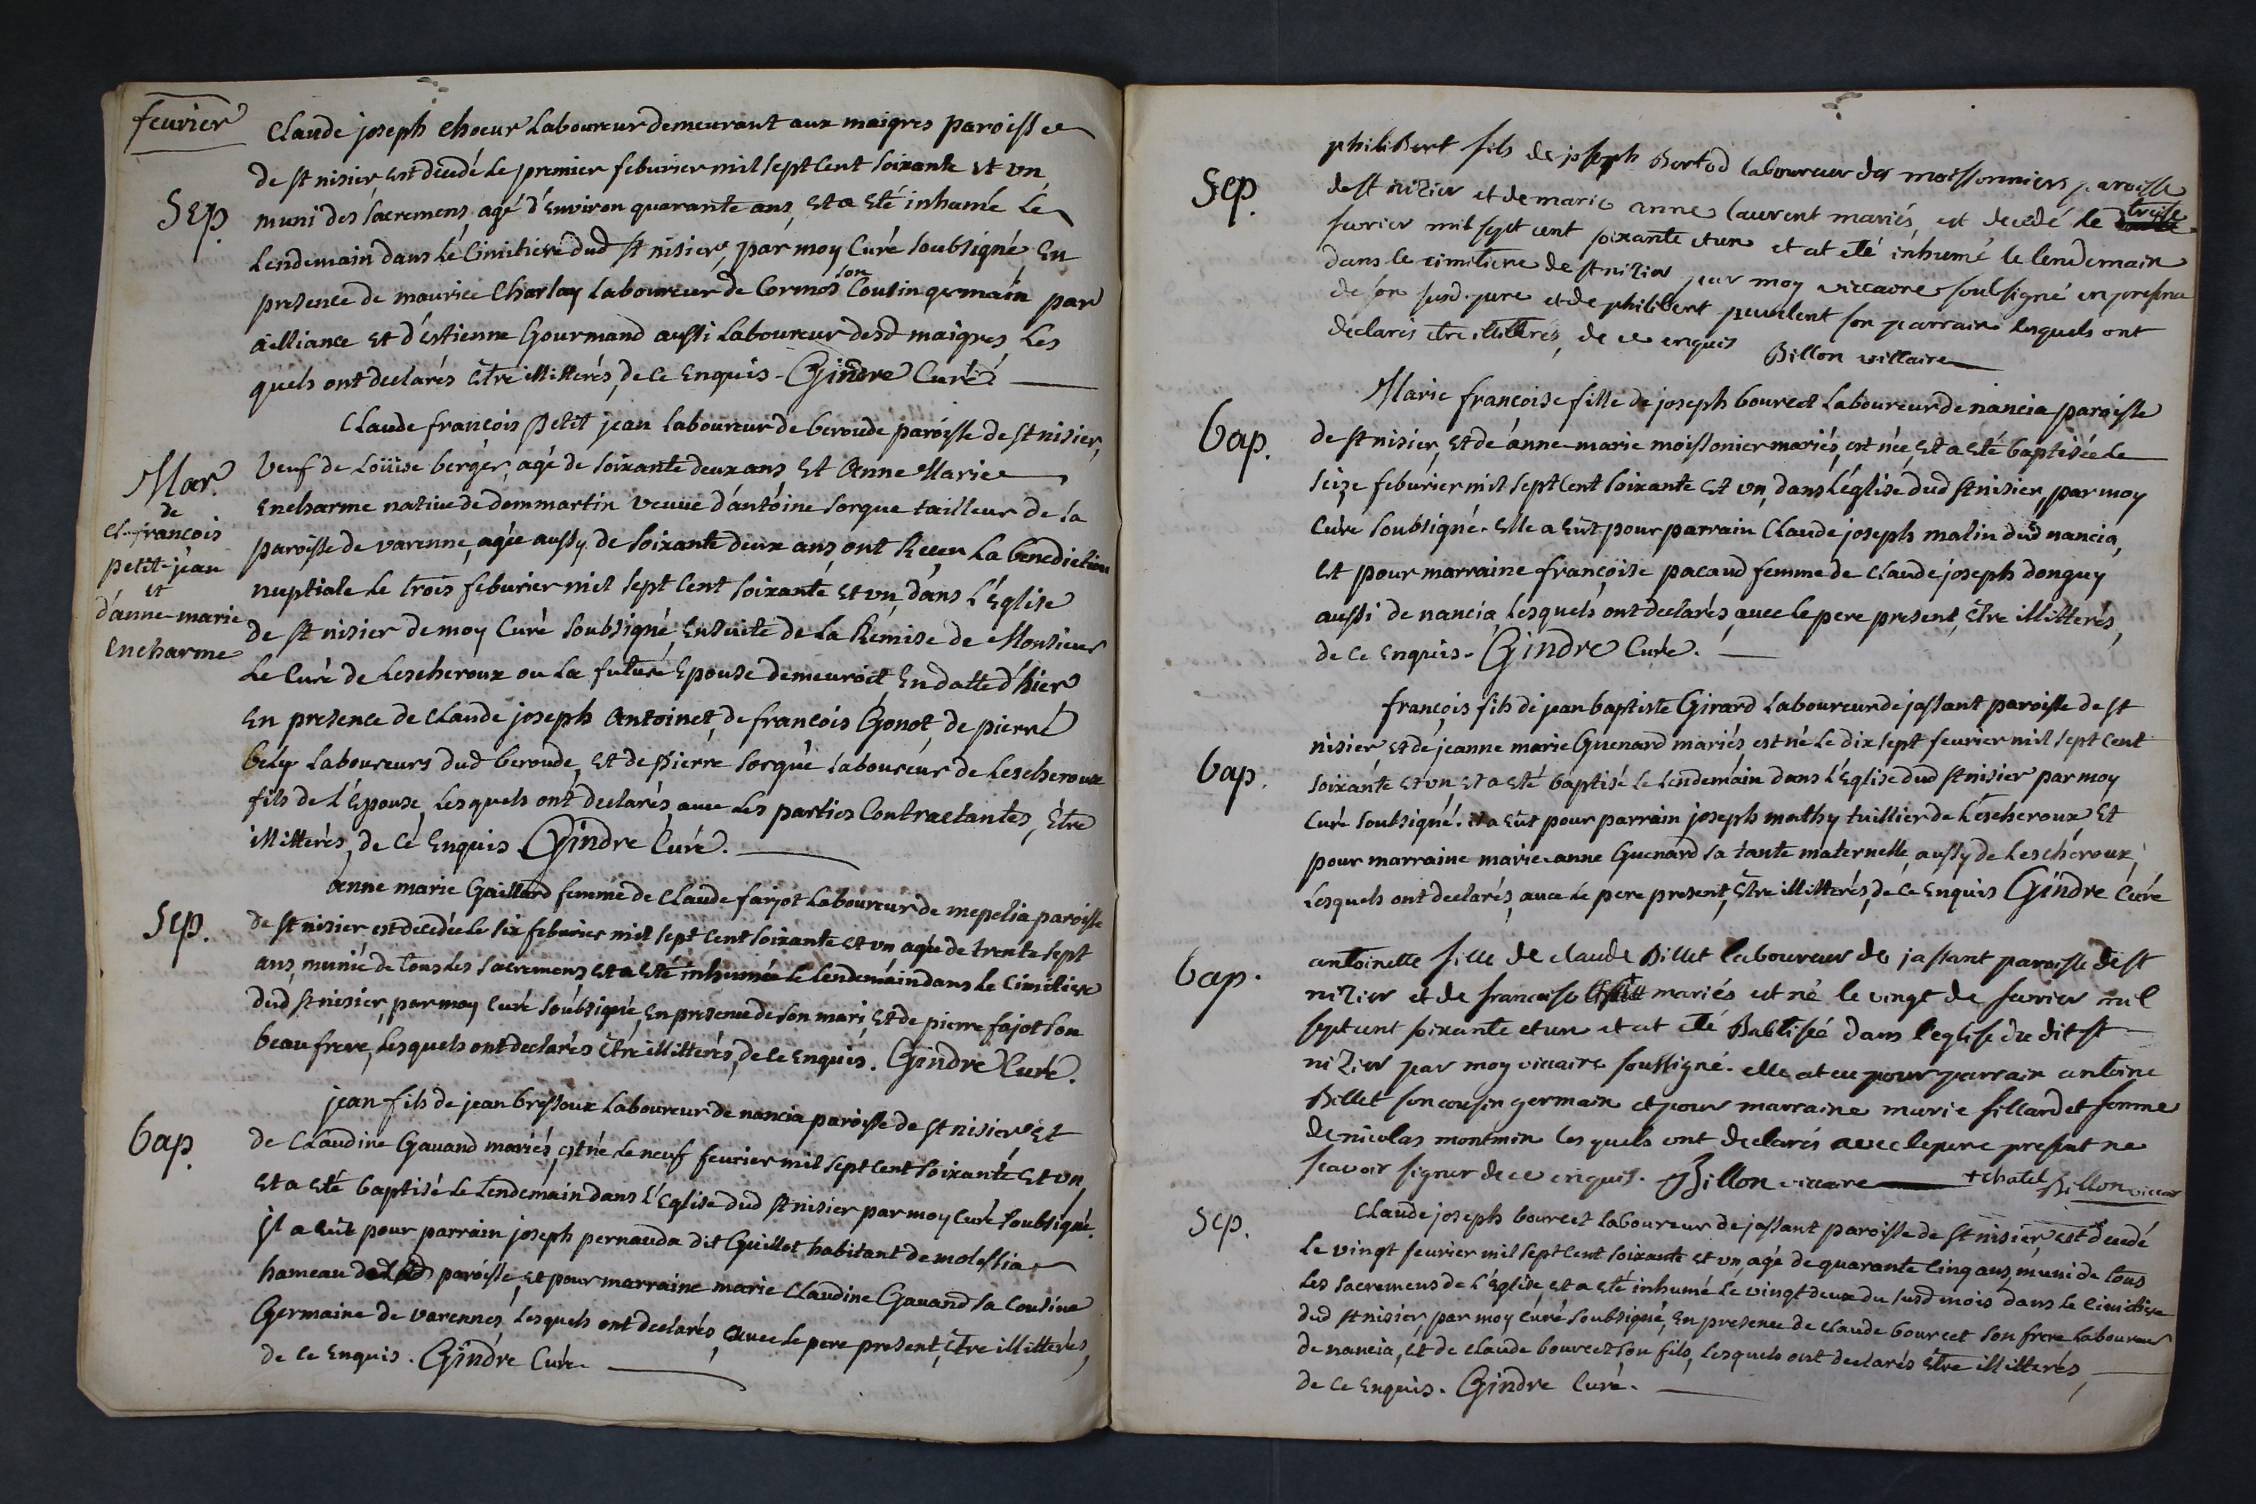 fevrier
Claude joseph Choeur Laboureur demeurant aux maigres paroisse
de st nisier, est decedé le premier feburier mil sept cent soixante et un
Sep.
muni des sacremens, agé d'Environ quarante ans, et a Eté inhumé Le
Lendemain dans Le Cimitiere dud st nisier, par moy Curé soubsigné En
presence de maurice Charlay Laboureur de Cormos son Cousin germain par
ailliance et d'éstienne Gourmand aussi Laboureur desd maigres, Les
quels ont declarés Etre illitterés, de ce Enquis - Gindre Curé
Claude françois petit jean laboureur de beroude paroisse de st nisier,
Mar.
de
cl-françois
petit-jean
et
d'anne-marie
Encharme
veuf de Loüise berger, agé de soixante deux ans, et Anne Marie
Encharme native de dommartin veuve d'antoine sorgue tailleur de la
paroisse de varenne, agée aussy de soixante deux ans, ont Reçeu La benediction
nuptiale le trois feburier mil sept cent soixante et un, dans L'Eglise
de st nisier de moy Curé soubsigné, Ensuite de la Remise de Monsieur
Le Curé de Lescheroux ou La future Epouse demeuroit, En datte d'hier
En presence de claude joseph Antoinet, de françois Gonot, de pierre
bely Laboureurs dud beroude, et de pierre sorgue laboureur de Lescheroux
fils de L'Epouse, Lesquels ont declarés, avec Les parties Contractantes, Etre
illitterés, de ce Enquis. Gindre Curé.
Anne marie Gaillard femme de claude farjot Laboureur de mepelia paroisse
Sep.
de st nisier est decedée le six feburier mil sept cent soixante et un, agée de trente sept
ans, munie de tous les sacremens, et a eté inhumée le lendemain dans le Cimitiere
dud st nisier, par moy Curé soubsigné, En presence de son mari, et de pierre fajot son
beau frere, Lesquels ont declarés Etre illitterés, de ce Enquis. Gindre Curé.
jean fils de jean bressoux Laboureur de nancia paroisse de st nisier et
Bap.
de Claudine Gavand mariés, est né le neuf fevrier mil sept cent soixante et un,
et a eté baptisé le lendemain dans L'Eglise dud st nisier par moy Curé soubsigné.
Il a eüt pour parrain joseph pernauda dit Guillot habitant de molossia
hameau paroisse, et pour marraine marie Claudine Gavand sa Cousine
Germaine de varennes, lesquels ont declarés, avec le pere present, Etre illitterés,
de ce Enquis. Gindre Curé.
philibert fils de joseph Bertod laboureur des moissonniers paroisse
Sep.
de st nizier et de marie anne laurent mariés, est decedé le treize
fevrier mil sept cent soixante et un et at eté inhumé le lendemain
dans le cimitiere de st nizier par moy viccaire soussigné en presence
de son susd. pere et de philibert son parrain lesquels ont
declarés etre illitterés, de ce enquis Billon viccaire
Marie françoise fille de joseph bourcet Laboureur de nancia paroisse
Bap.
de st nisier, et de anne-marie moissonier mariés, est née, et a eté baptisée le
seize feburier mil sept cent soixante et un, dans l'église dud st nisier, par moy
Curé soubsigné. Elle a eüt pour parrain Claude joseph malin dud nancia,
et pour marraine françoise pacaud femme de claude joseph donguy
aussi de nancia, Lesquels ont declarés, avec le pere present, Etre illitterés,
de ce Enquis. Gindre Curé.
françois fils de jean baptiste Girard Laboureur de jassant paroisse de st
nisier et de jeanne marie Guenard mariés est né le dix sept fevrier mil sept cent
Bap.
soixante et un, et a eté baptisé le lendemain dans l'Eglise dud st nisier par moy
Curé soubsigné. Il a eüt pour parrain joseph mathy tuillier de Lescheroux et
pour marraine marie-anne Guenard sa tante maternelle aussy de Lescheroux,
Lesquels ont declarés, avec le pere present, Etre illitterés, de ce Enquis Gindre Curé
Bap.
antoinette fille de claude Billet laboureur de jassant paroisse de st
nizier et de francoise + mariés est né le vingt de fevrier mil
sept cent soixante et un et at eté Babtisée dans l'eglise du dit st
nizier par moy viccaire soussigné. elle at eu pour parrain antoine
Billet son cousin germain et pour marraine marie fillardet femme
de nicolas montmin lesquels ont declarés avec le pere present ne
scavoir signer de ce enquis. Billon viccaire + Chatel Billon viccair
Sep.
Claude joseph bourcet Laboureur de jassant paroisse de st nisier, est decedé
le vingt fevrier mil sept cent soixante et un, agé de quarante cinq ans, muni de tous
les sacremens de L'Eglise, et a eté inhumé Le vingt deux du susd mois dans le cimitiere
dud st nisier, par moy Curé soubsigné, En presence de claude bourcet son frere laboureur
de nancia, et de claude bourcet son fils, lesquels ont declarés Etre illitterés,
de ce Enquis. Gindre Curé.